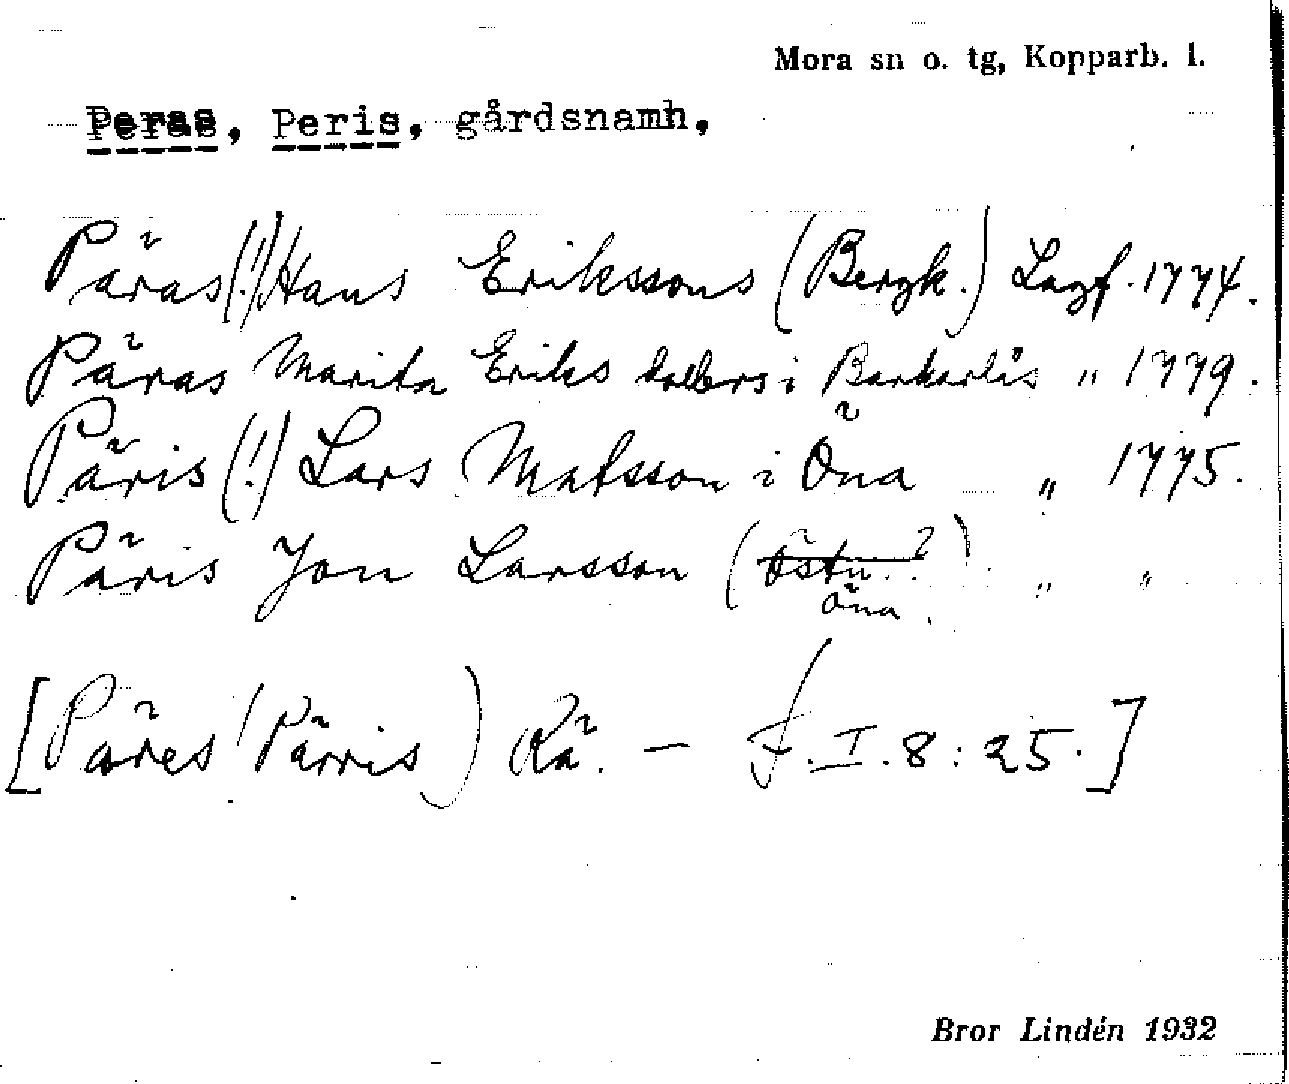 Mora sn o. tg, Kopparb. l.
Peras, Peris, gårdsnamn,
Päras (!) Hans Erikssons (Bergk.) Lagf. 1774.
Päras Marita Eriks dotters i Barkarlås " 1779.
Päris (!) Lars Matsson i Öna " 1775.
Päris Jon Larsson (Östn. ?) " "
Öna
[Päres (Pärris) Rä. — F. I. 8 : 25.]
Bror Lindén 1932